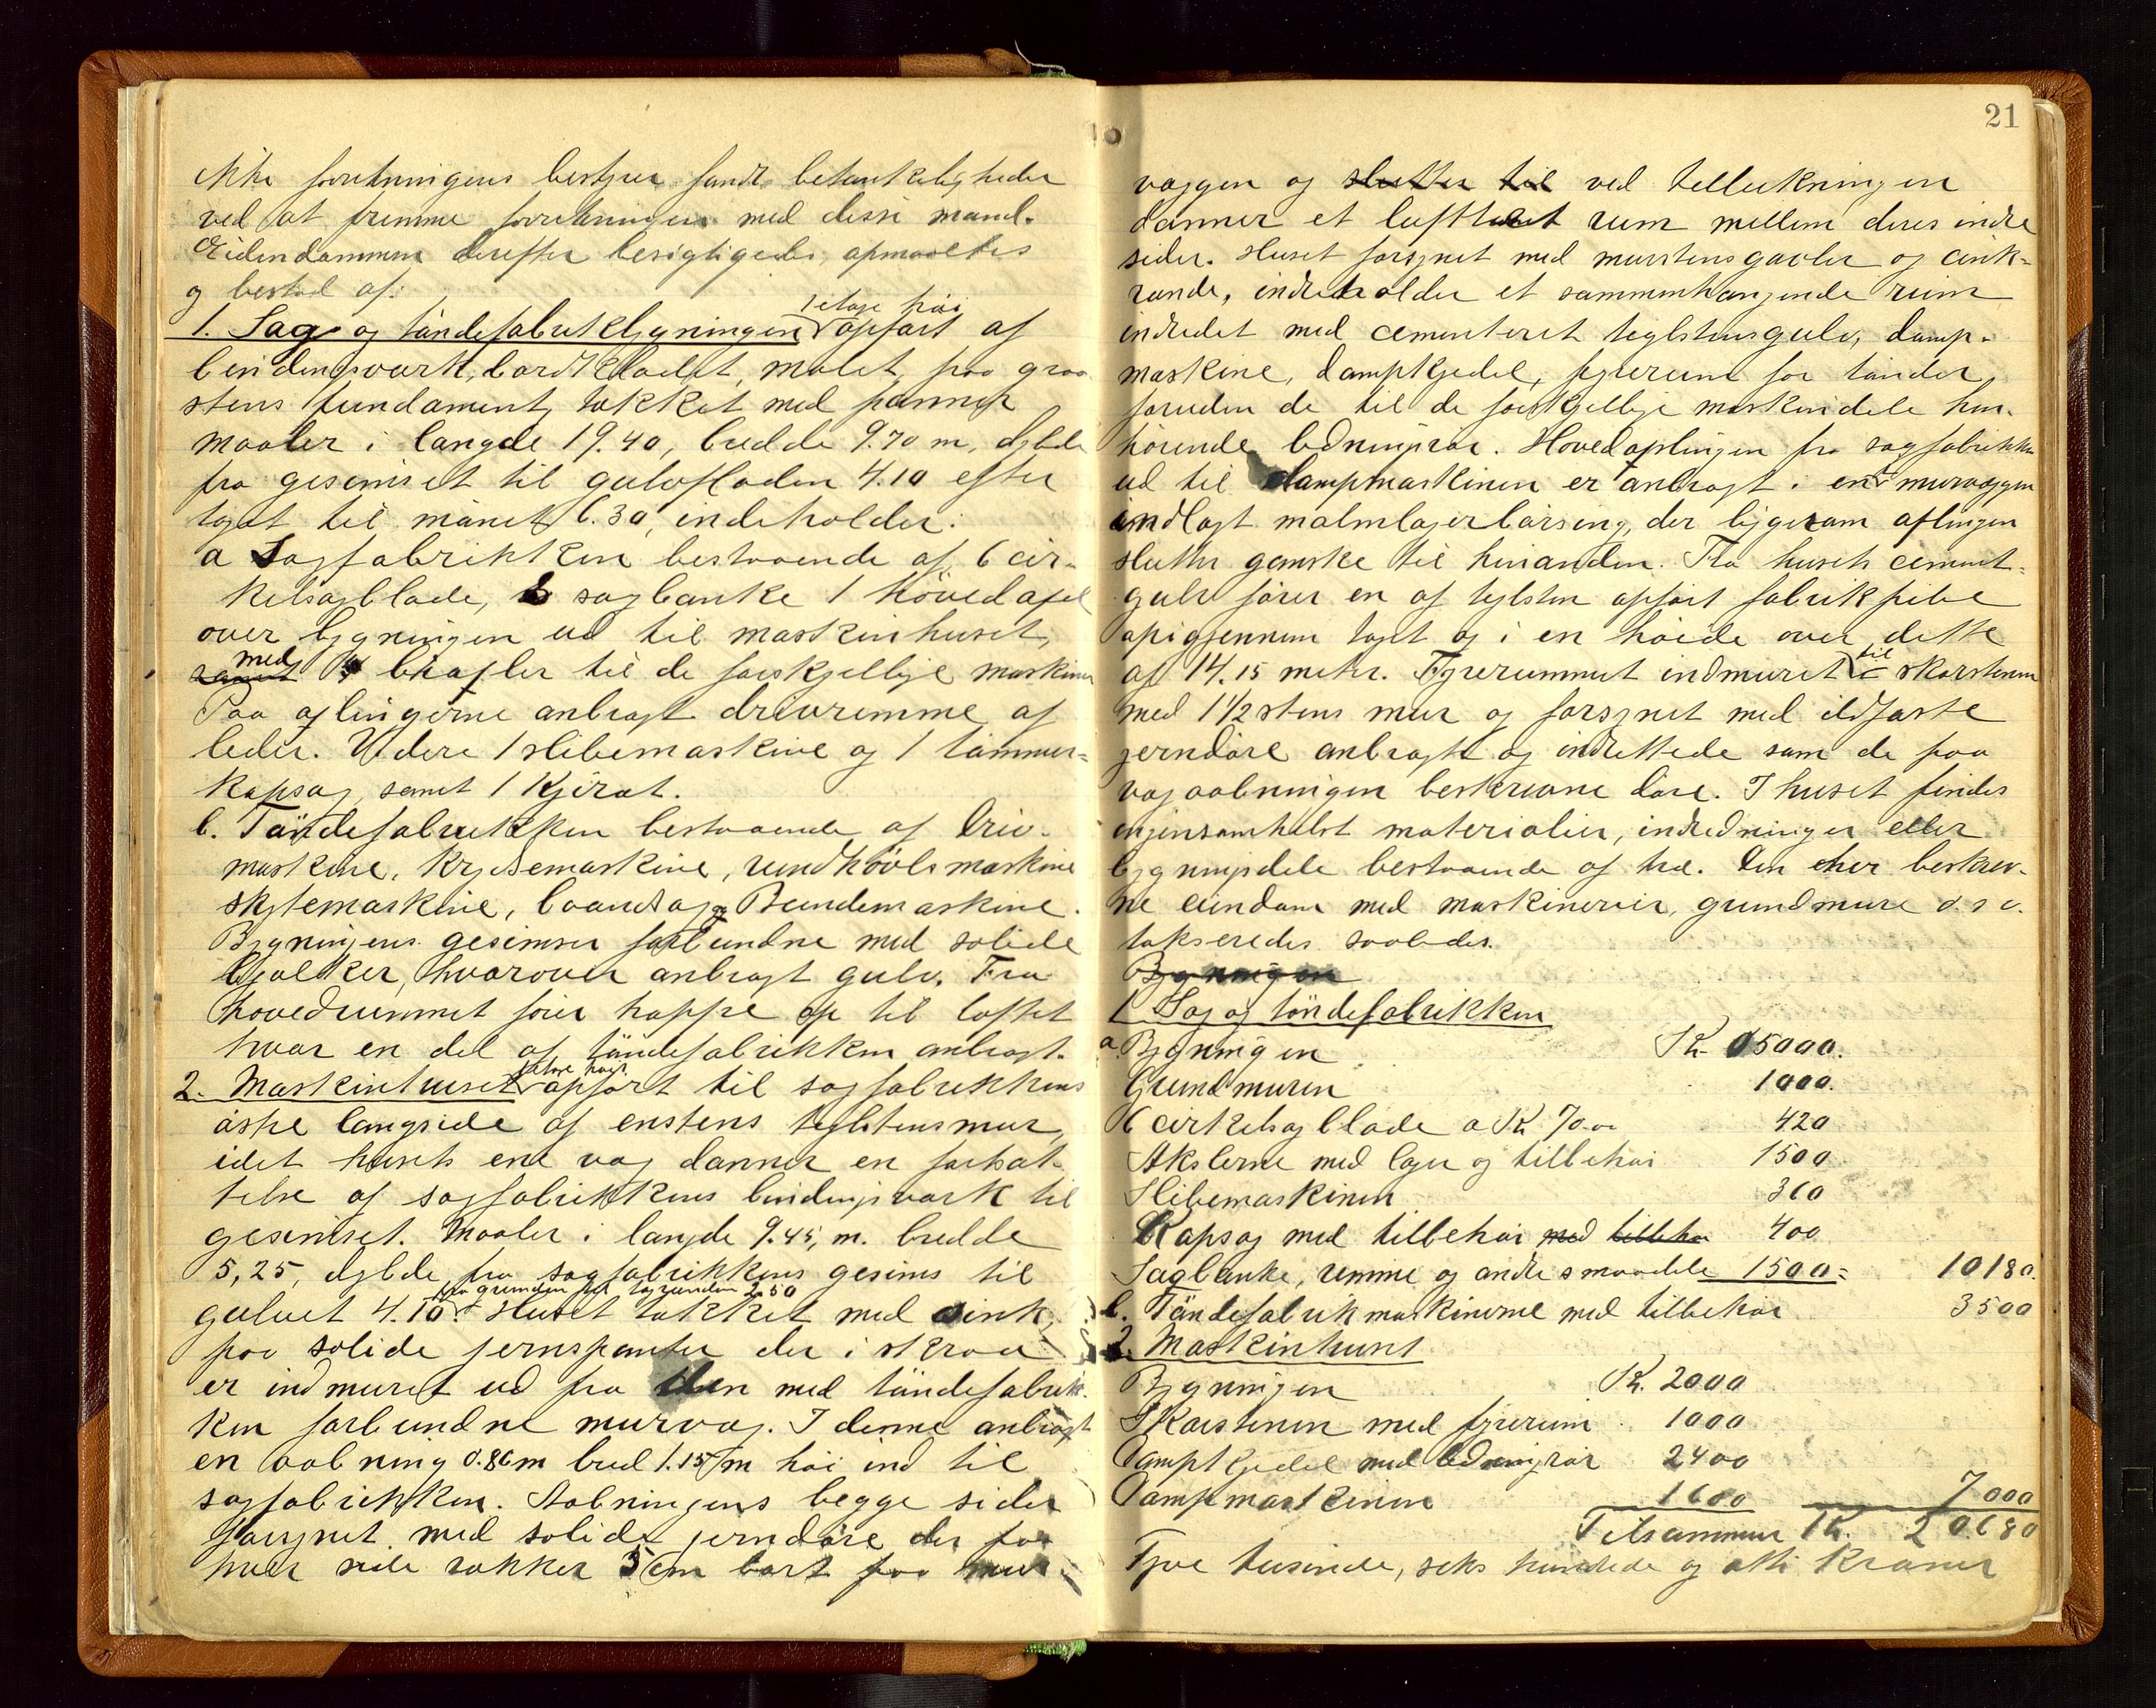 ikke forretningens bestyrer fandt betænkeligheder
ved at fremme forretningen med disse mænd.
Eiendommen derefter besigtigedes, opmaaltes
og bestod af:
1 etage høi
1. Sag og töndefabrikbygningen opført af
bindingsværk, bordklædet, malet, paa graa
stens fundament, tækket med panner
maaler i længde 19.40, bredde 9.70 m, dybde
fra gesimset til gulvfladen 4.10 efter
taget til mønet 6.30, indeholder:
a Sagfabrikken bestaaende af 6 cir-
kelsagblade, sagbænke 1 hövedaxel
over bygningen ud til maskinhuset,
samt med biaxler til de forskjellige maskiner
Paa axlingerne anbragt drivremme af
læder. Videre 1 slibemaskine og 1 tömmer-
kapsag, samt 1 Kjerat.
b. Töndefabrikken bestaaende af driv-
maskine, Krydsemaskine, rundhövlsmaskine
skytemaskine, baandsag og Bundemaskine.
Bygningens gesimser forbundne med solide
bjælker, hvorover anbragt gulv. Fra
hovedrummet fører trappe op til loftet
hvor en del af töndefabrikken anbragt.
1 etage høit
2. Maskinhuset opført til sagfabrikkens
østre langside af enstens teglstensmur,
idet husets ene væg danner en fortsæt-
telse af sagfabrikkens bindingsværk til
gesimset. Maaler i længde 9.45, m. bredde
5,25, dybde fra sagfabrikkens gesims til
fra grunden til tagranden 2.50
gulvet 4.10. Huset tækket med zink,
paa solide jernsparrer der i skraa
er indmuret ud fra den med töndefabrik-
ken forbundne murvæg. I denne anbragt
en aabning 0.86 m bred 1.15 m høi ind til
sagfabrikken. Aabningens begge sider
forsynet med solide jerndøre der paa
hver side rækker 5 cm bort paa mur-
21
væggen og slutter til ved tillukningen
danner et lufttæt rum mellem deres indre
sider. Huset forsynet med murstensgavler og zink-
rende, indeholder et sammenhængende rum
indredet med cementeret teglstensgulv, damp-
maskine, dampkjedel, fyrerum for tønder,
foruden de til de forskjellige maskindele hen-
hørende ledningsrør. Hovedaxlingen fra sagfabrikken
ud til dampmaskinen er anbragt i en i murvæggen
indlagt malmlagerbøsning, der ligesom axlingen
slutter ganske til hinanden. Fra husets cement-
gulv fører en af teglsten opført fabrikpibe
op igjennem taget og i en høide over dette
af 14.15 meter. Fyrerummet indmuret til skorstenen
med 1 1/2 stens mur og forsynet med ildfaste
jerndøre anbragte og indrettede som de paa
vægaabningen beskrevne døre. I huset findes
ingensomhelst materialier, indredninger eller
bygningsdele bestaaende af træ. Den her beskrev-
ne eiendom med maskinerier, grundmure o. s. v.
takseredes saaledes.
Bygningen
1 Sag og töndefabrikken
a. Bygningen Kr. 5000.
Grundmuren 1000.
6 cirkelsagblade a Kr 70.00 420
Akslerne med lager og tilbehør 1500
Slibemaskinen 360
Kapsag med tilbehør med tilbehør 400
Sagbænke, remme og andre smaadele 1500= 10180.
b. Töndefabrikmaskinerne med tilbehør 3500
2. Maskinhuset
Bygningen Kr. 2000
Skorstenen med fyrerum 1000
Dampkjedel med ledningsrør 2400
Dampmaskinen 1600 7000
Tilsammen Kr. 20680
Tyve tusinde, seks hundrede og otti Kroner